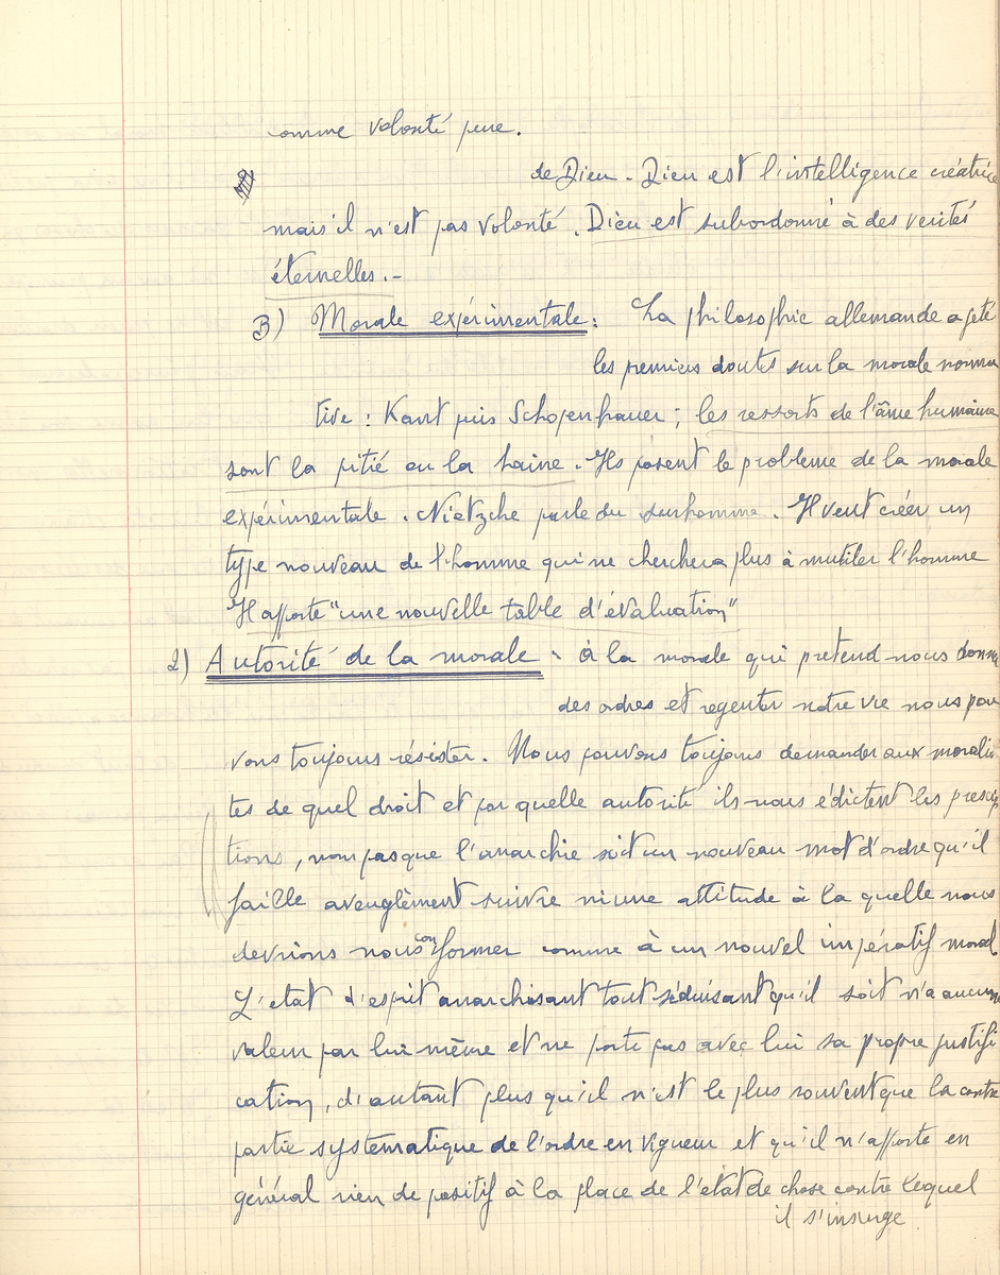 comme volonté pure.
de Dieu. Dieu est l'intelligence créatrice
mais il n'est pas volonté. Dieu est subordonné à des verités
éternelles.-
3) Morale expérimentale: La philosophie allemande a jeté
les premiers doutes sur la morale norma
tive : Kant puis Schopenhauer ; les ressorts de l'âme humaine
sont la pitié ou la haine. Ils posent le probleme de la morale
expérimentale. Nietzche parle du surhomme. Il veut créer un
type nouveau de l'homme qui ne cherchera plus à mutiler l'homme
Il apporte "une nouvelle table d'évaluation"
2) Autorité de la morale : à la morale qui pretend nous donner
des ordres et regenter notre vie nous pou
vons toujours résister. Nous pouvons toujours demander aux moralis
tes de quel droit et par quelle autorité ils nous édictent les prescrip
tions, non pas que l'anarchie soit un nouveau mot d'ordre qu'il
faille aveuglèment suivre ni une attitude à la quelle nous
devrions nous conformer comme à un nouvel impératif moral
L'etat d'esprit anarchisant tout séduisant qu'il soit n'a aucune
valeur par lui même et ne porte pas avec lui sa propre justifi
cation, d'autant plus qu'il n'est le plus souvent que la contre
partie systematique de l'ordre en vigueur et qu'il n'apporte en
général rien de positif à la place de l'etat de chose contre lequel
il s'insurge